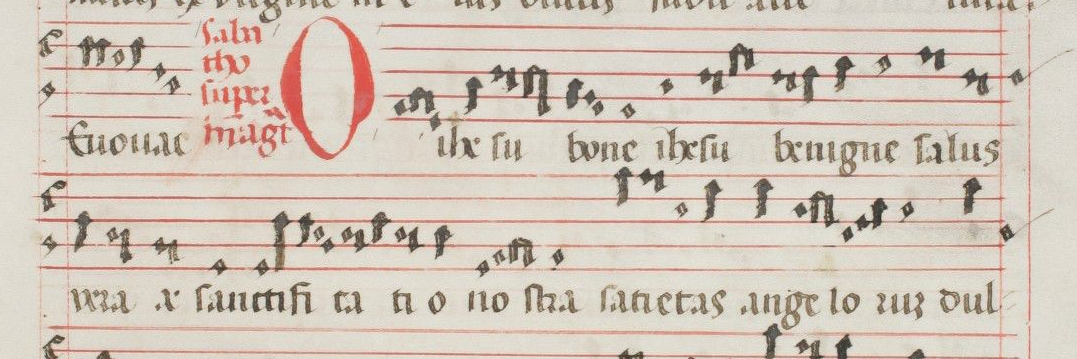 Euouae
sabb
tho
super
magt
O ihesu bone ihesu benigne salus
vera & sanctifi ca ti o no stra satietas ange lo rum dul-